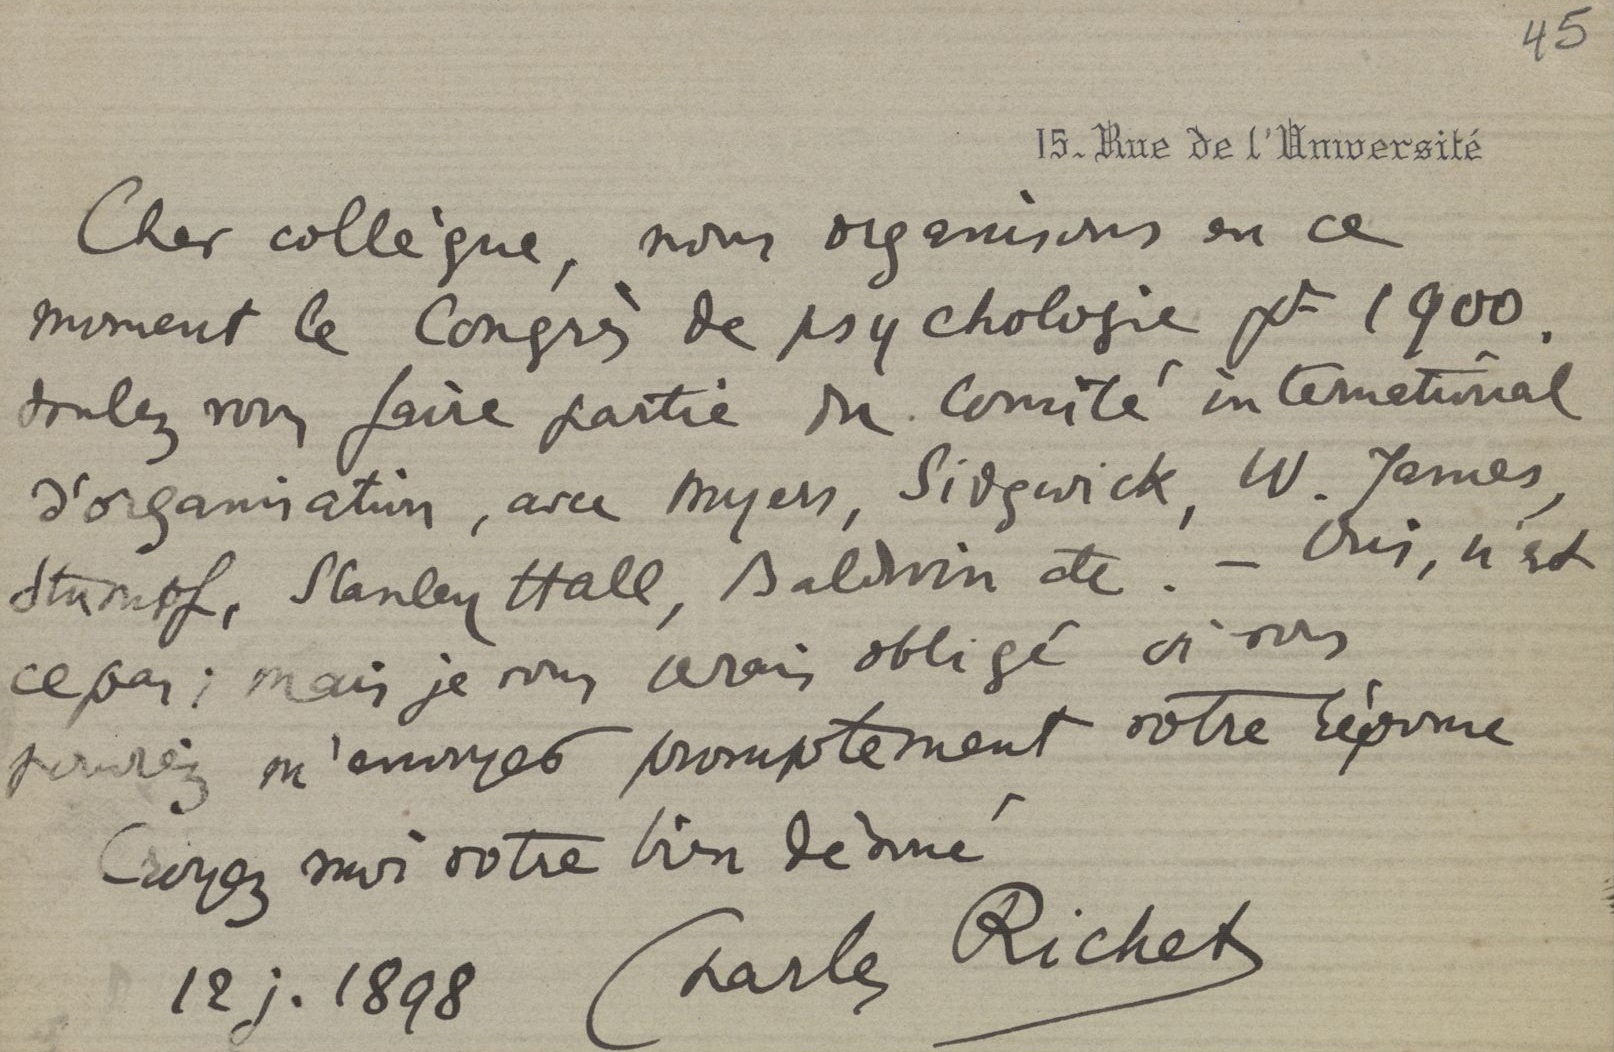 45
15. Rue de l'Université
Cher collègue, nous organisons en ce
moment le Congrès de psychologie pr 1900.
Voulez vous faire partie du Comité international
d'organisation, avec Myers, Sidgwick, W. James,
Stumpf, Stanley Hall, Baldwin etc. — Oui, n'est
ce pas; mais je vous serais obligé si vous
pouviez m'envoyer promptement votre réponse
Croyez moi votre bien dévoué
12 j. 1898 Charles Richet